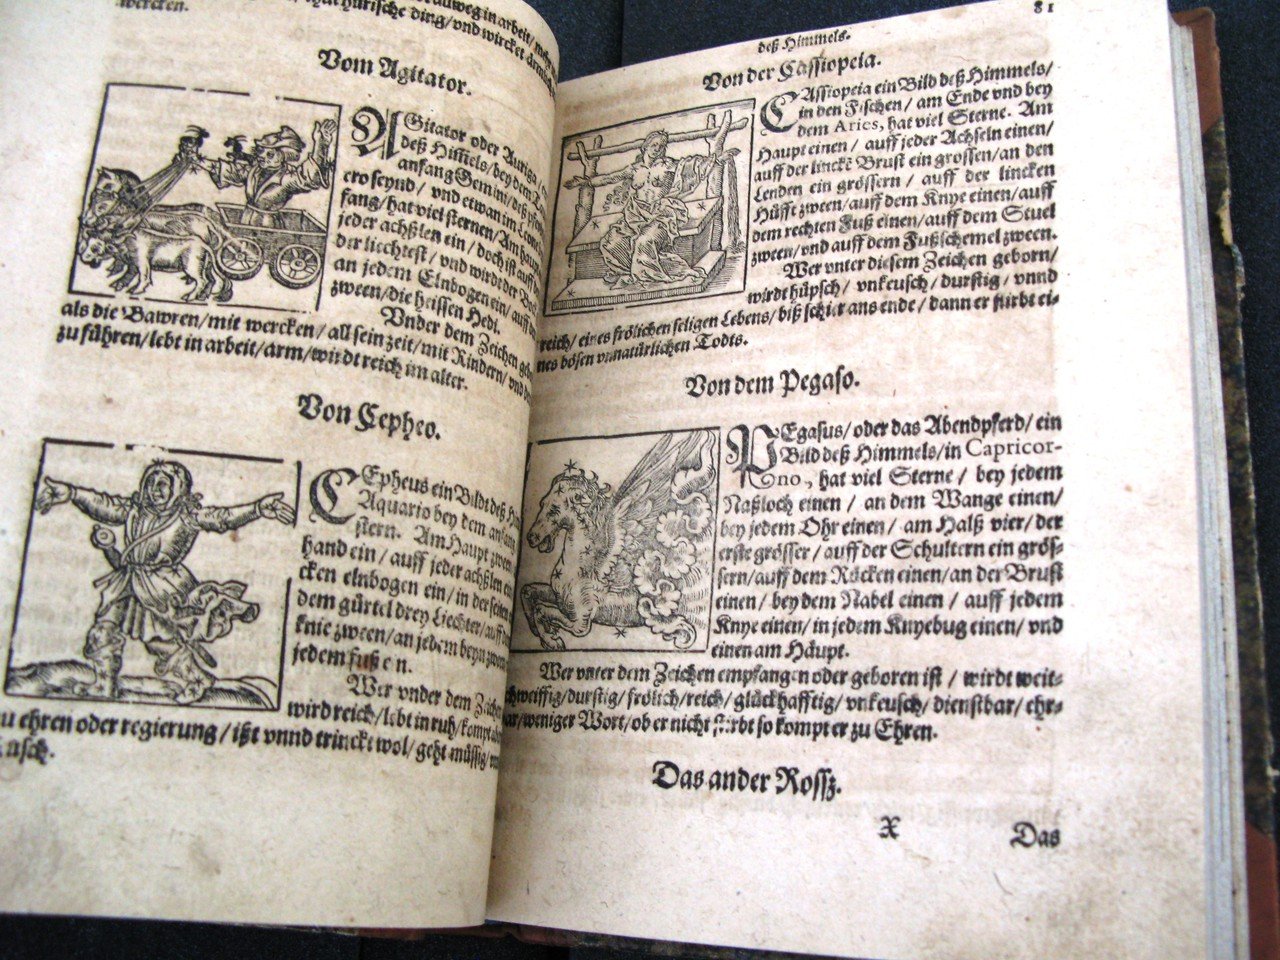 auweg in arbeit/
wercken.
hürische ding/vnd wircket
Vom Agitator.
AGitator oder Auriga/
deß Him̃els/bey dem
anfang Gemini/deß
ero seynd/ vnd etwan im
fang/hat viel sternen/Am haupt
jeder achßlen ein/ doch ist auff
der liechtest/ vnd wirdt der
an jedem Elnbogen ein/ auff
zween/die heissen Hedi.
Vnder dem Zeichen
als die Bawren/mit wercken/ all sein zeit/mit Rindern/vnd
zu führen/lebt in arbeit/arm/wirdt reich im alter.
Von Cepheo.
CEpheus ein Bildt deß
Aquario bey dem anfang
stern. Am Haupt zween
hand ein/ auff jeder achßlen
cken elnbogen ein/in der seiten
dem gürtel drey Liechter/auff
knie zween/an jedem beyn zween
jedem fussen.
Wer vnder dem Zeichen
wird reich/lebt in ruh/kompt
zu ehren oder regierung/ißt vnnd trinckt wol/ geht müssig/
kusch.
81
deß Himmels.
Von der Cassiopeia.
CAssiopeia ein Bild deß Himmels/
in den Fischen/ am Ende vnd bey
dem Aries, hat viel Sterne. Am
Haupt einen/ auff jeder Achseln einen/
auff der linckẽ Brust ein grossen/an den
Lenden ein grössern / auff der lincken
Hüfft zween/auff dem Knye einen/auff
dem rechten Fuß einen/auff dem Stuel
zween/vnd auff dem Fußschemel zween.
Wer vnter diesem Zeichen geborn/
wirdt hüpsch/ vnkeusch/ durstig/ vnnd
reich/ eines frölichen seligen Lebens/ biß schier ans ende/ dann er stirbt ei-
nes bösen vnnatürlichen Todts.
Von dem Pegaso.
PEgasus/ oder das Abendpferd/ ein
Bild deß Himmels/in Capricor-
no, hat viel Sterne / bey jedem
Naßloch einen / an dem Wange einen/
bey jedem Ohr einen/ am Halß vier/ der
erste grösser / auff der Schultern ein grös-
sern/auff dem Rücken einen/an der Brust
einen/ bey dem Nabel einen / auff jedem
Knye einen/ in jedem Knyebug einen/ vnd
einen am Häupt.
Wer vnter dem Zeichen empfangen oder geboren ist / wirdt weit-
schweiffig/durstig/ frölich/reich/ glückhafftig/ vnkeusch/ dienstbar/ ehr-
bar/weniger Wort/ ob er nicht stirbt so kompt er zu Ehren.
Das ander Rossz.
X
Das